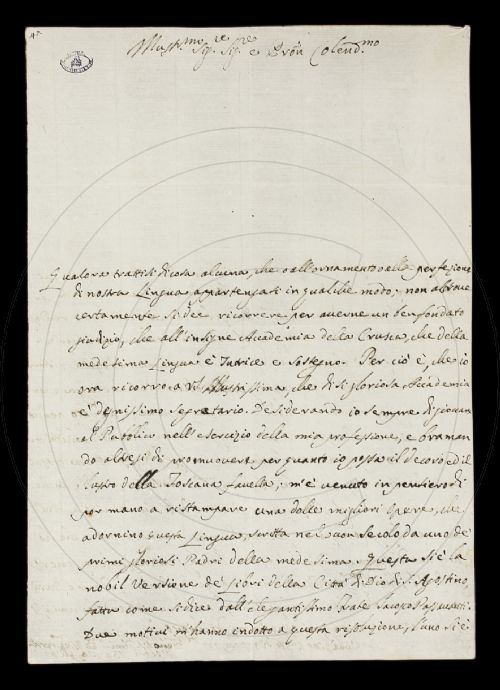 Illustr.mo Sig.re Sig.re e Pròn Colend.mo
Qualora trattisi di cosa alcuna, che o all'ornamento o alla perfezione
di nostra Lingua appartengasi in qualche modo; non altrove
certamente si dee ricorrere per averne un ben fondato
giudizio, che all'insigne Accademia della Crusca, che della
medesima Lingua è Tutrice e Sostegno. Per ciò è, che io
ora ricorro a VS. Illustrissima, che di sì gloriosa Accademia
è degnissimo Segretario. Desiderando io sempre di giovar
al Pubblico nell'esercizio della mia professione, e braman
do altresì di promuovere per quanto io possa il decoro, ed il
lustro della Toscana favella, m'è venuto in pensiero di
por mano a ristampare una delle migliori Opere, che
adornino questa Lingua, scritta nel buon Secolo da uno de'
primi gloriosi Padri della medesima. Questa si è la
nobil Versione de' Libri della Città di Dio di S. Agostino,
fatta come si dice dall'elegantissimo Frate Jacopo Passavanti.
Due motivi m'hanno indotto a questa risoluzione, l'uno si è